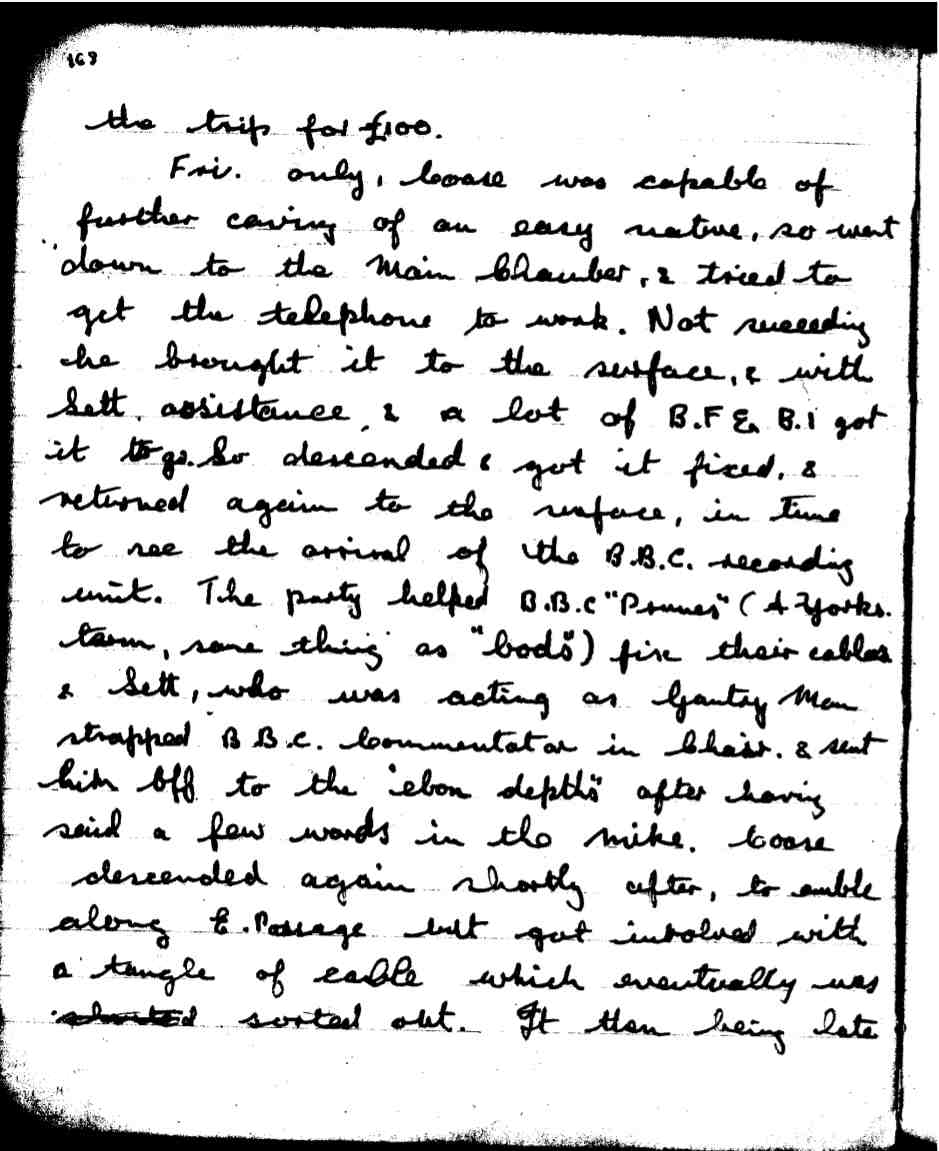 168
the trip for £100.
Fri. only, Coase was capable of
further caving of an easy nature, so went
down to the Main Chamber, & tried to
get the telephone to work. Not succeeding
he brought it to the surface, & with
Sett. assistance, & a lot of B.F & B.I got
it to go. So descended & got it fixed, &
returned again to the surface, in time
to see the arrival of the B.B.C. recording
unit. The party helped B.B.C "Prunes" (A Yorks.
term, same thing as "bods") fix their cables
& Sett, who was acting as Gantry Man
strapped B.B.C. Commentator in Chair. & sent
him off to the "ebon depths" after having
said a few words in the mike. Coase
descended again shortly after, to amble
along E. Passage but got involved with
a tangle of cable which eventually was
sorted out. It then being late